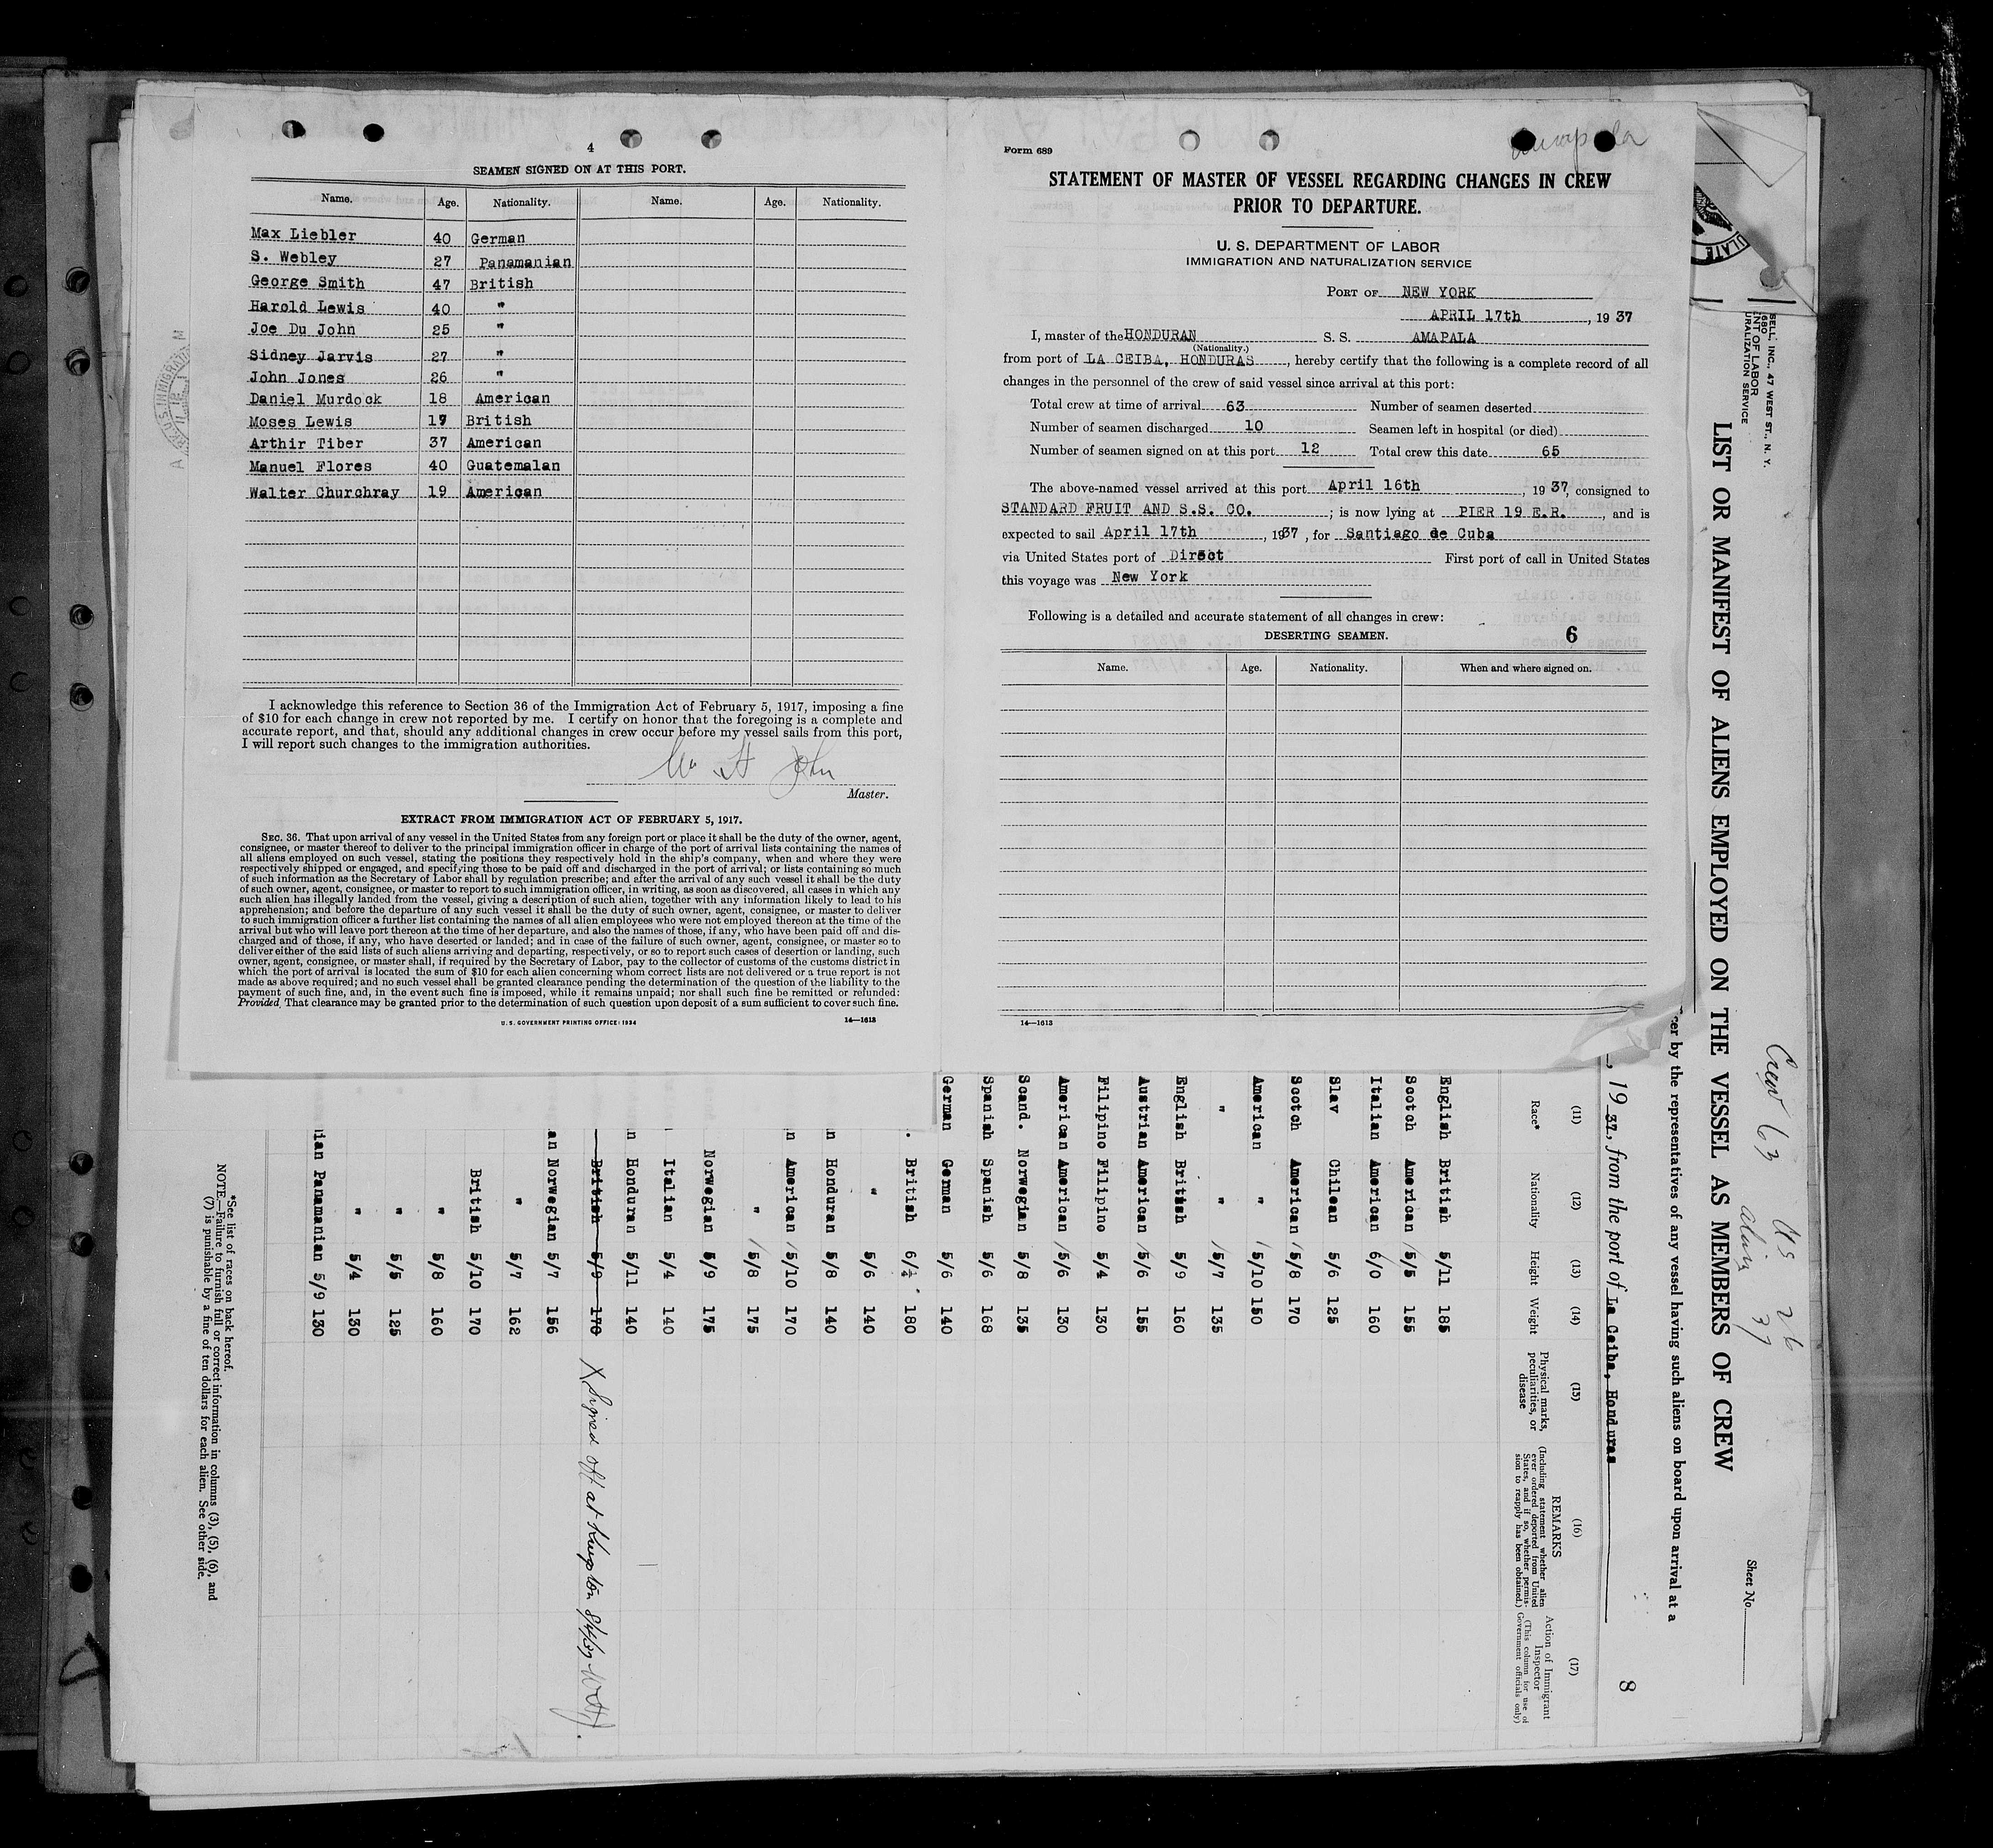 4
SEAMEN SIGNED ON AT THIS PORT.
Name. Age. Nationality. Name. Age. Nationality.
Max Liebler 40 German
S. Webley 27 Panamanian
George Smith 47 British
Harold Lewis 40 "
Joe Du John 25 "
Sidney Jarvis 27 "
John Jones 26 "
Daniel Murdock 18 American
Moses Lewis 19 British
Arthir Tiber 37 American
Manuel Flores 40 Guatemalan
Walter Churchray 19 American
I acknowledge this reference to Section 36 of the Immigration Act of February 5, 1917, imposing a fine
of $10 for each change in crew not reported by me. I certify on honor that the foregoing is a complete and
accurate report, and that, should any additional changes in crew occur before my vessel sails from this port,
I will report such changes to the immigration authorities.
Wm H John
Master.
EXTRACT FROM IMMIGRATION ACT OF FEBRUARY 5, 1917.
SEC. 36. That upon arrival of any vessel in the United States from any foreign port or place it shall be the duty of the owner, agent,
consignee, or master thereof to deliver to the principal immigration officer in charge of the port of arrival lists containing the names of
all aliens employed on such vessel, stating the positions they respectively hold in the ship's company, when and where they were
respectively shipped or engaged, and specifying those to be paid off and discharged in the port of arrival; or lists containing so much
of such information as the Secretary of Labor shall by regulation prescribe; and after the arrival of any such vessel it shall be the duty
of such owner, agent, consignee, or master to report to such immigration officer, in writing, as soon as discovered, all cases in which any
such alien has illegally landed from the vessel, giving a description of such alien, together with any information likely to lead to his
apprehension; and before the departure of any such vessel it shall be the duty of such owner, agent, consignee, or master to deliver
to such immigration officer a further list containing the names of all alien employees who were not employed thereon at the time of the
arrival but who will leave port thereon at the time of her departure, and also the names of those, if any, who have been paid off and dis-
charged and of those, if any, who have deserted or landed; and in case of the failure of such owner, agent, consignee, or master so to
deliver either of the said lists of such aliens arriving and departing, respectively, or so to report such cases of desertion or landing, such
owner, agent, consignee, or master shall, if required by the Secretary of Labor, pay to the collector of customs of the customs district in
which the port of arrival is located the sum of $10 for each alien concerning whom correct lists are not delivered or a true report is not
made as above required; and no such vessel shall be granted clearance pending the determination of the question of the liability to the
payment of such fine, and, in the event such fine is imposed, while it remains unpaid; nor shall such fine be remitted or refunded:
Provided, That clearance may be granted prior to the determination of such question upon deposit of a sum sufficient to cover such fine.
U. S. GOVERNMENT PRINTING OFFICE: 1934 14—1613
Form 689
Amapala
STATEMENT OF MASTER OF VESSEL REGARDING CHANGES IN CREW
PRIOR TO DEPARTURE.
U. S. DEPARTMENT OF LABOR
IMMIGRATION AND NATURALIZATION SERVICE
PORT OF NEW YORK
APRIL 17th, 1937
I, master of the HONDURAN S. S. AMAPALA
(Nationality.)
from port of LA CEIBA, HONDURAS, hereby certify that the following is a complete record of all
changes in the personnel of the crew of said vessel since arrival at this port:
Total crew at time of arrival 63 Number of seamen deserted
Number of seamen discharged 10 Seamen left in hospital (or died)
Number of seamen signed on at this port 12 Total crew this date 65
The above-named vessel arrived at this port April 16th, 1937, consigned to
STANDARD FRUIT AND S.S. CO.; is now lying at PIER 19 E.R., and is
expected to sail April 17th, 1937, for Santiago de Cuba
via United States port of Direct First port of call in United States
this voyage was New York
Following is a detailed and accurate statement of all changes in crew:
DESERTING SEAMEN. 6
Name. Age. Nationality. When and where signed on.
14—1613
Sheet No.
Crew 63 US 26
alien 37
SELL, INC., 47 WEST ST., N. Y.
NT OF LABOR
URALIZATION SERVICE
LIST OR MANIFEST OF ALIENS EMPLOYED ON THE VESSEL AS MEMBERS OF CREW
cer by the representatives of any vessel having such aliens on board upon arrival at a
, 1937, from the port of La Ceiba, Honduras
8
(11) (12) (13) (14) (15) (16) (17)
Race* Nationality Height Weight Physical marks, peculiarities, or disease REMARKS (Including statement whether alien ever ordered deported from United States, and if so, whether permission to reapply has been obtained.) Action of Immigrant Inspector (This column for use of Government officials only)
English British 5/11 185
Scotch American 5/5 155
Italian American 6/0 160
Slav Chilean 5/6 125
Scotch American 5/8 170
American " 5/10 150
" " 5/7 135
English British 5/9 160
Austrian American 5/6 155
Filipino Filipino 5/4 130
American American 5/6 130
Scand. Norwegian 5/8 135
Spanish Spanish 5/6 168
German German 5/6 140
. British 6/½ 180
" 5/6 140
n Honduran 5/8 140
n American 5/10 170
" 5/8 175
Norwegian 5/9 175
Italian 5/4 140
n Honduran 5/11 140
British 5/9 170 X Signed off at Kingston 8/4/37 WHJ.
an Norwegian 5/7 156
" 5/7 162
British 5/10 170
" 5/8 160
" 5/5 125
" 5/4 130
ian Panamanian 5/9 130
*See list of races on back hereof.
NOTE.—Failure to furnish full or correct information in columns (3), (5), (6), and
(7) is punishable by a fine of ten dollars for each alien. See other side.